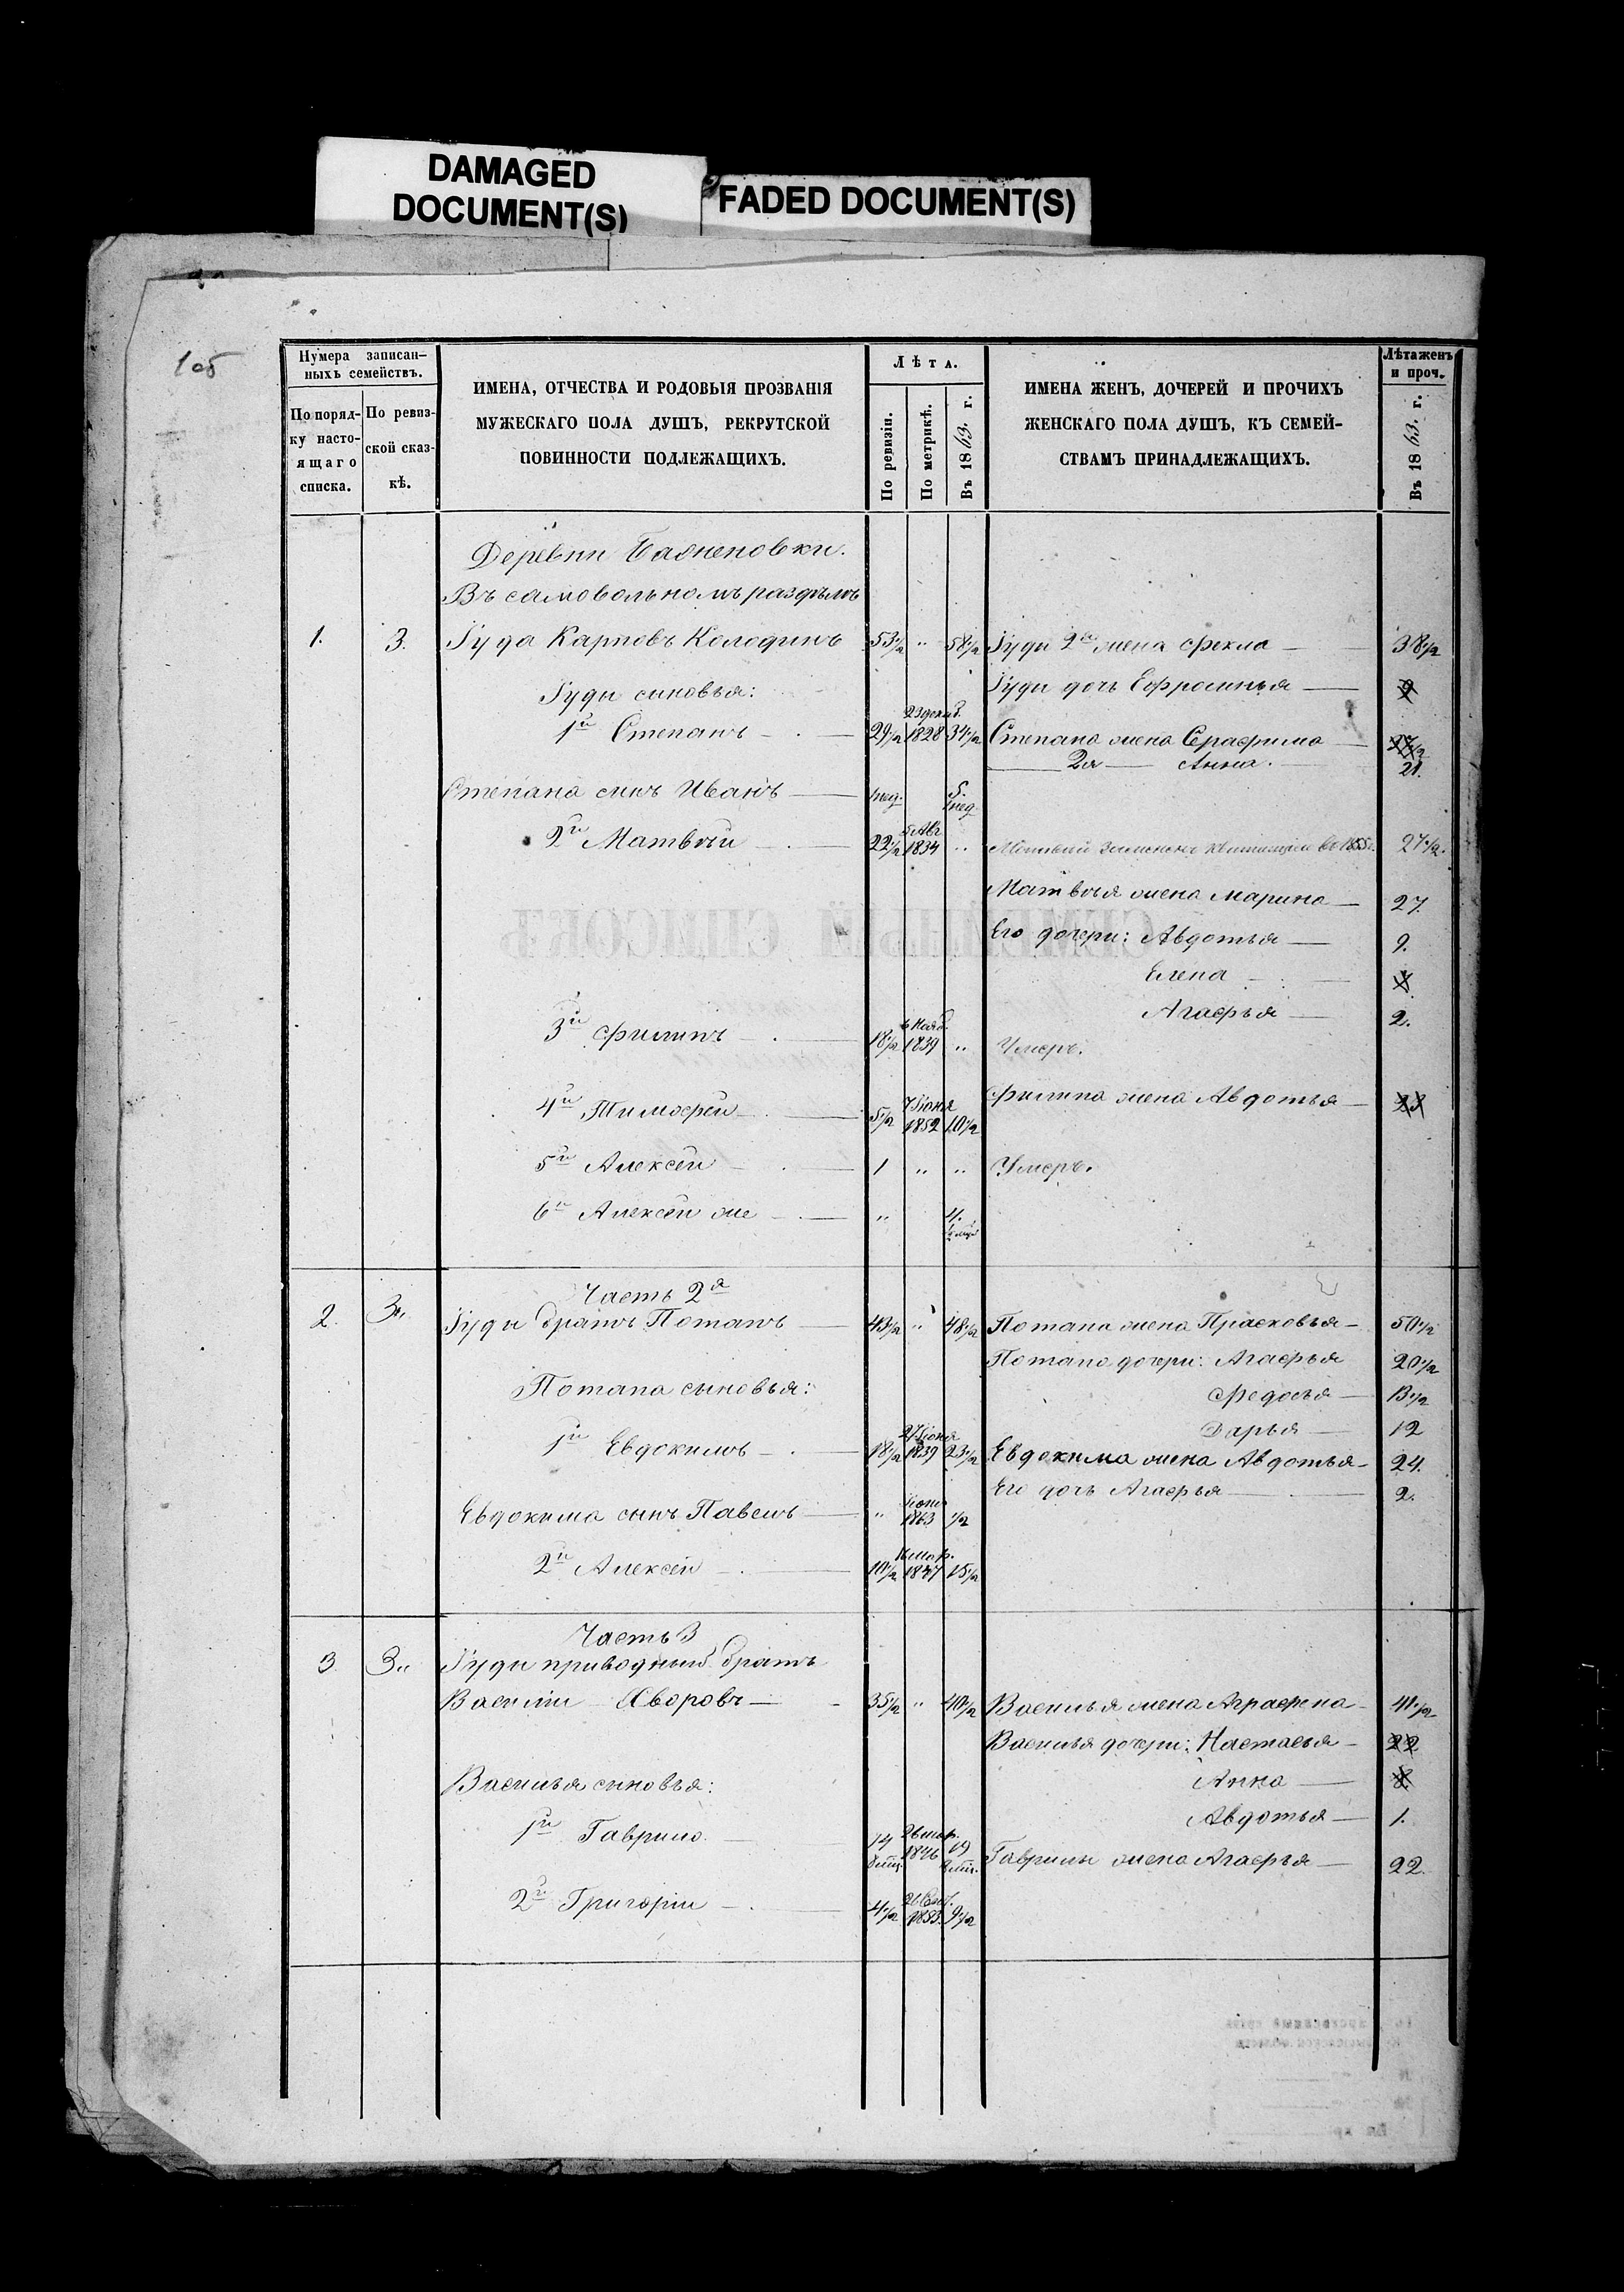 DAMAGED
DOCUMENT(S)
FADED DOCUMENT(S)
105
Нумера записан-
ныхъ семействъ.
По поряд-
ку насто-
ящаго
списка.
По ревиз-
ской сказ-
кѣ.
ИМЕНА, ОТЧЕСТВА И РОДОВЫЯ ПРОЗВАНІЯ
МУЖЕСКАГО ПОЛА ДУШЪ, РЕКРУТСКОЙ
ПОВИННОСТИ ПОДЛЕЖАЩИХЪ.
Лѣта.
По ревизіи.
По метрикѣ.
Въ 1863. г.
ИМЕНА ЖЕНЪ, ДОЧЕРЕЙ И ПРОЧИХЪ
ЖЕНСКАГО ПОЛА ДУШЪ, КЪ СЕМЕЙ-
СТВАМЪ ПРИНАДЛЕЖАЩИХЪ.
Лѣта женъ
и проч.
Въ 1863. г.
Деревни
Въ самовольномъ раздѣлѣ
1. 3. Іуда Карповъ Колодинъ 53½ " 58½ Іуды 2я жена Фекла 38½
Іуды сыновья: Іуды дочь Ефросинья 9
1й Степанъ 29½ 23 декаб. 1828 34½ Степана жена Серафима
2я Анна. 21.
Степана сынъ Иванъ 1 нед. 5. 1 нед.
2й Матвѣй 22½ 5 Авг. 1834 " въ 1855 г. 27½.
Матвѣя жена Марина 27.
Его дочери: Авдотья 9.
Елена
Агафья 2.
3й Филипъ 18½ 6 Нояб. 1839 " Умеръ.
Филипа жена Авдотья 23
4й Тимофей 5½ 7 Іюня 1852 10½
5й Алексѣй 1 " " Умеръ.
6й Алексѣй же " 4.
Часть 2я
2. 3" Іуды братъ Потапъ 43½ " 48½ Потапа жена Прасковья 50½
Потапа дочери: Агафья 20½
Потапа сыновья: Федосья 13½
Дарья 12
1й Евдокимъ 18½ 27 Іюня 1839 23½ Евдокима жена Авдотья 24.
Его дочь Агафья 2.
Евдокима сынъ Павелъ " Іюня 1863 ½
2й Алексѣй 10½ 16 мар. 1847 15½
Часть 3
3 3" Іуды приводный братъ
Василій Яворовъ 35½ " 40½ Василья жена Аграфена 41½
Василья дочери: Настасья 22
Василья сыновья: Анна 8
Авдотья 1.
1й Гаврило. 14 26 мар. 1846 19 Гаврилы жена Агафья 22.
2й Григорій 4½ 1853. 9½